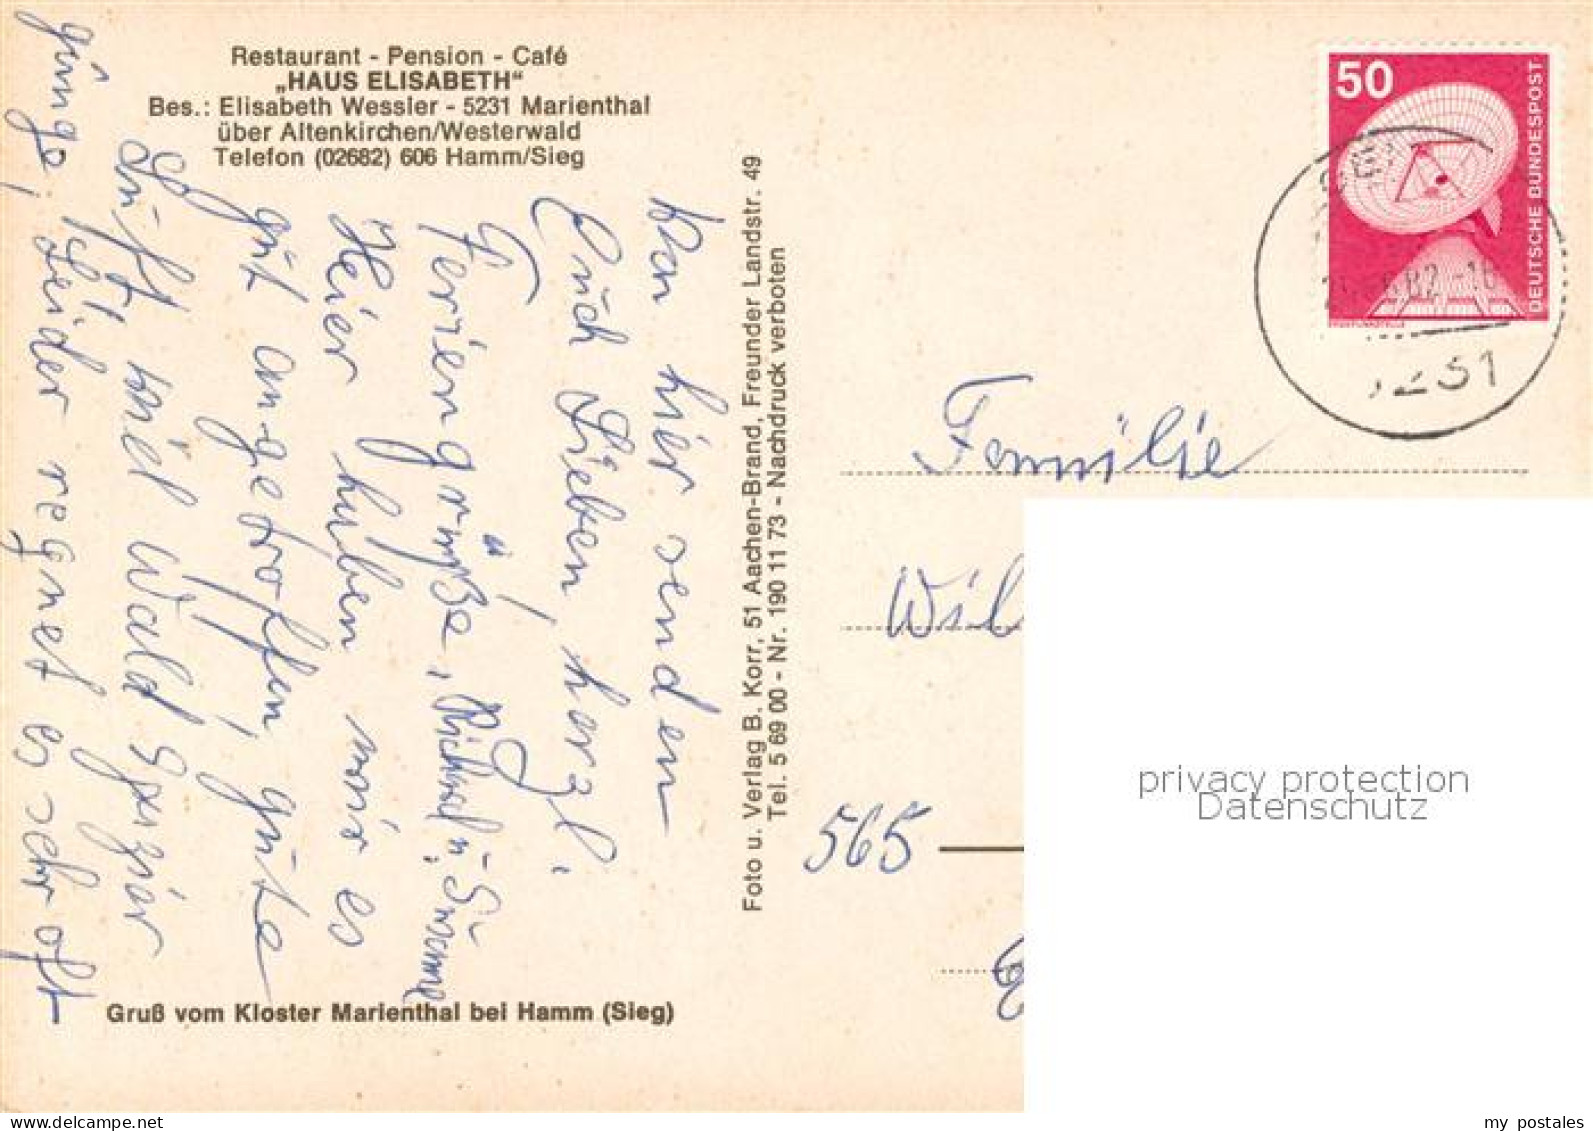 Restaurant - Pension - Café
„HAUS ELISABETH“
Bes.: Elisabeth Wessler - 5231 Marienthal
über Altenkirchen/Westerwald
Telefon (02682) 606 Hamm/Sieg
Von hier senden
Euch Lieben, herzl.
Feriengrüße, Richard u. Susanne
Heier haben wir es
gut angetroffen, gute
Luft viel Wald Spazier
gänge, Leider regnet es sehr oft
Gruß vom Kloster Marienthal bei Hamm (Sieg)
Foto u. Verlag B. Korr, 51 Aachen-Brand, Freunder Landstr. 49
Tel. 5 69 00 - Nr. 190 11 73 - Nachdruck verboten
50
DEUTSCHE BUNDESPOST
5231
Familie
Wil
565
privacy protection
Datenschutz
my postales